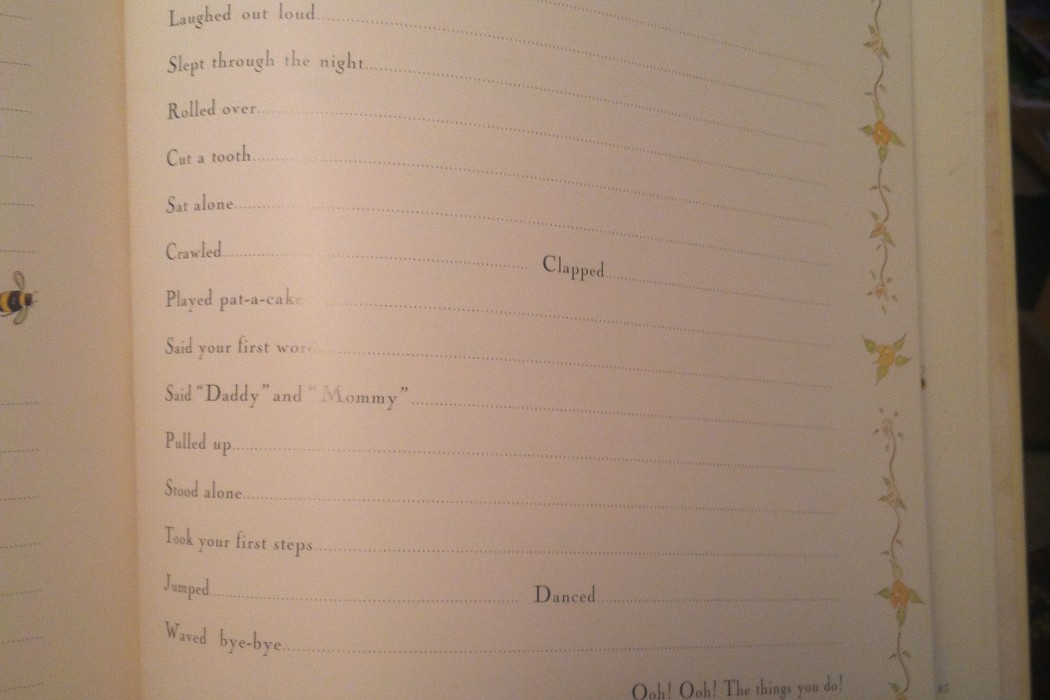 Laughed out loud
Slept through the night
Rolled over
Cut a tooth
Sat alone
Crawled Clapped
Played pat-a-cake
Said your first word
Said “Daddy” and “Mommy”
Pulled up
Stood alone
Took your first steps
Jumped Danced
Waved bye-bye
Ooh! Ooh! The things you do!